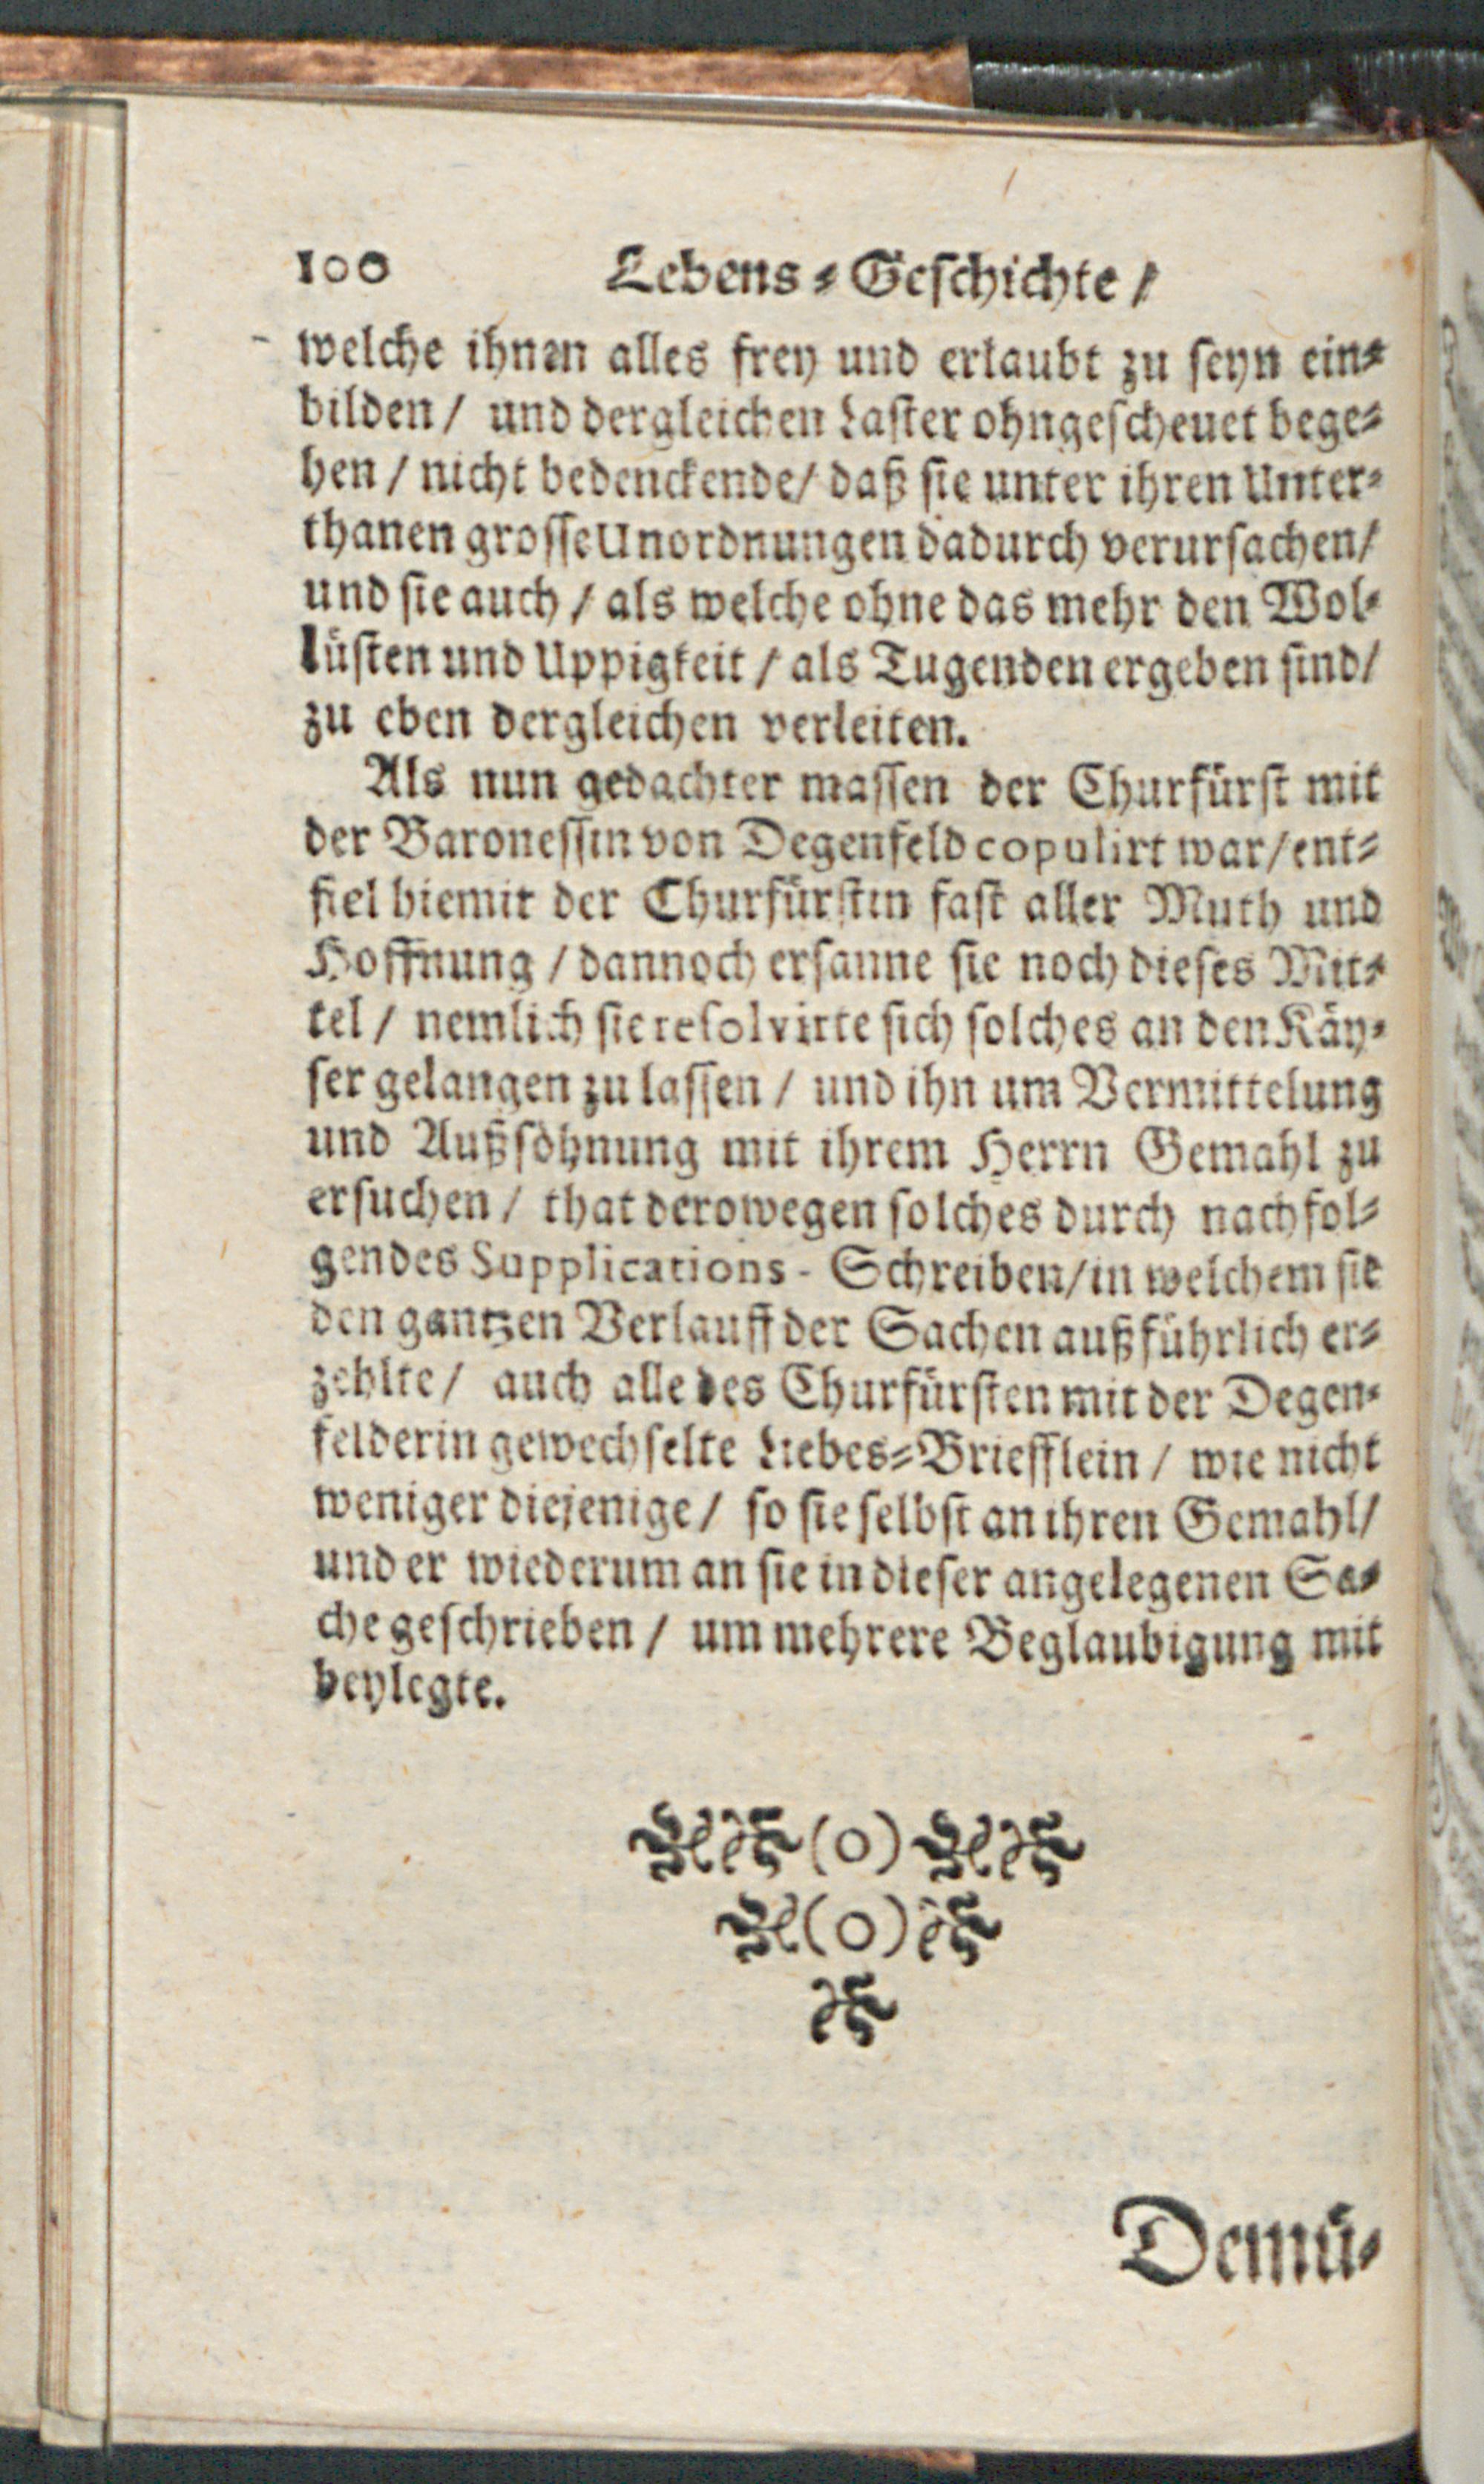 100 Lebens-Geschichte /
welche ihnen alles frey und erlaubt zu seyn ein-
bilden / und dergleichen Laster ohngescheuet bege-
hen / nicht bedenckende / daß sie unter ihren Unter-
thanen grosse Unordnungen dadurch verursachen /
und sie auch / als welche ohne das mehr den Wol-
lüsten und Uppigkeit / als Tugenden ergeben sind /
zu eben dergleichen verleiten.
Als nun gedachter massen der Churfürst mit
der Baronessin von Degenfeld copulirt war / ent-
fiel hiemit der Churfürstin fast aller Muth und
Hoffnung / dannoch ersanne sie noch dieses Mit-
tel / nemlich sie resolvirte sich solches an den Käy-
ser gelangen zu lassen / und ihn um Vermittelung
und Außsöhnung mit ihrem Herrn Gemahl zu
ersuchen / that derowegen solches durch nachfol-
gendes Supplications-Schreiben / in welchem sie
den gantzen Verlauff der Sachen außführlich er-
zehlte / auch alle des Churfürsten mit der Degen-
felderin gewechselte Liebes-Briefflein / wie nicht
weniger diejenige / so sie selbst an ihren Gemahl /
und er wiederum an sie in dieser angelegenen Sa-
che geschrieben / um mehrere Beglaubigung mit
beylegte.
(o)
(o)
Demü-